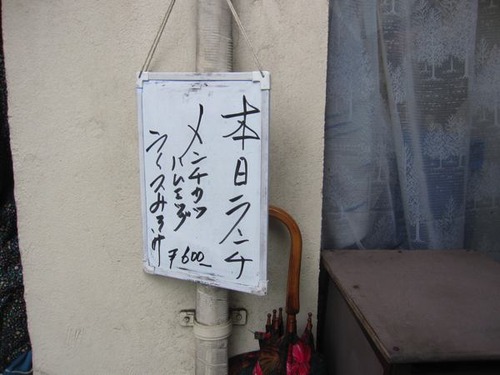 本日ランチ
メンチカツ
ハムエッグ
ライスみそ汁
¥600-